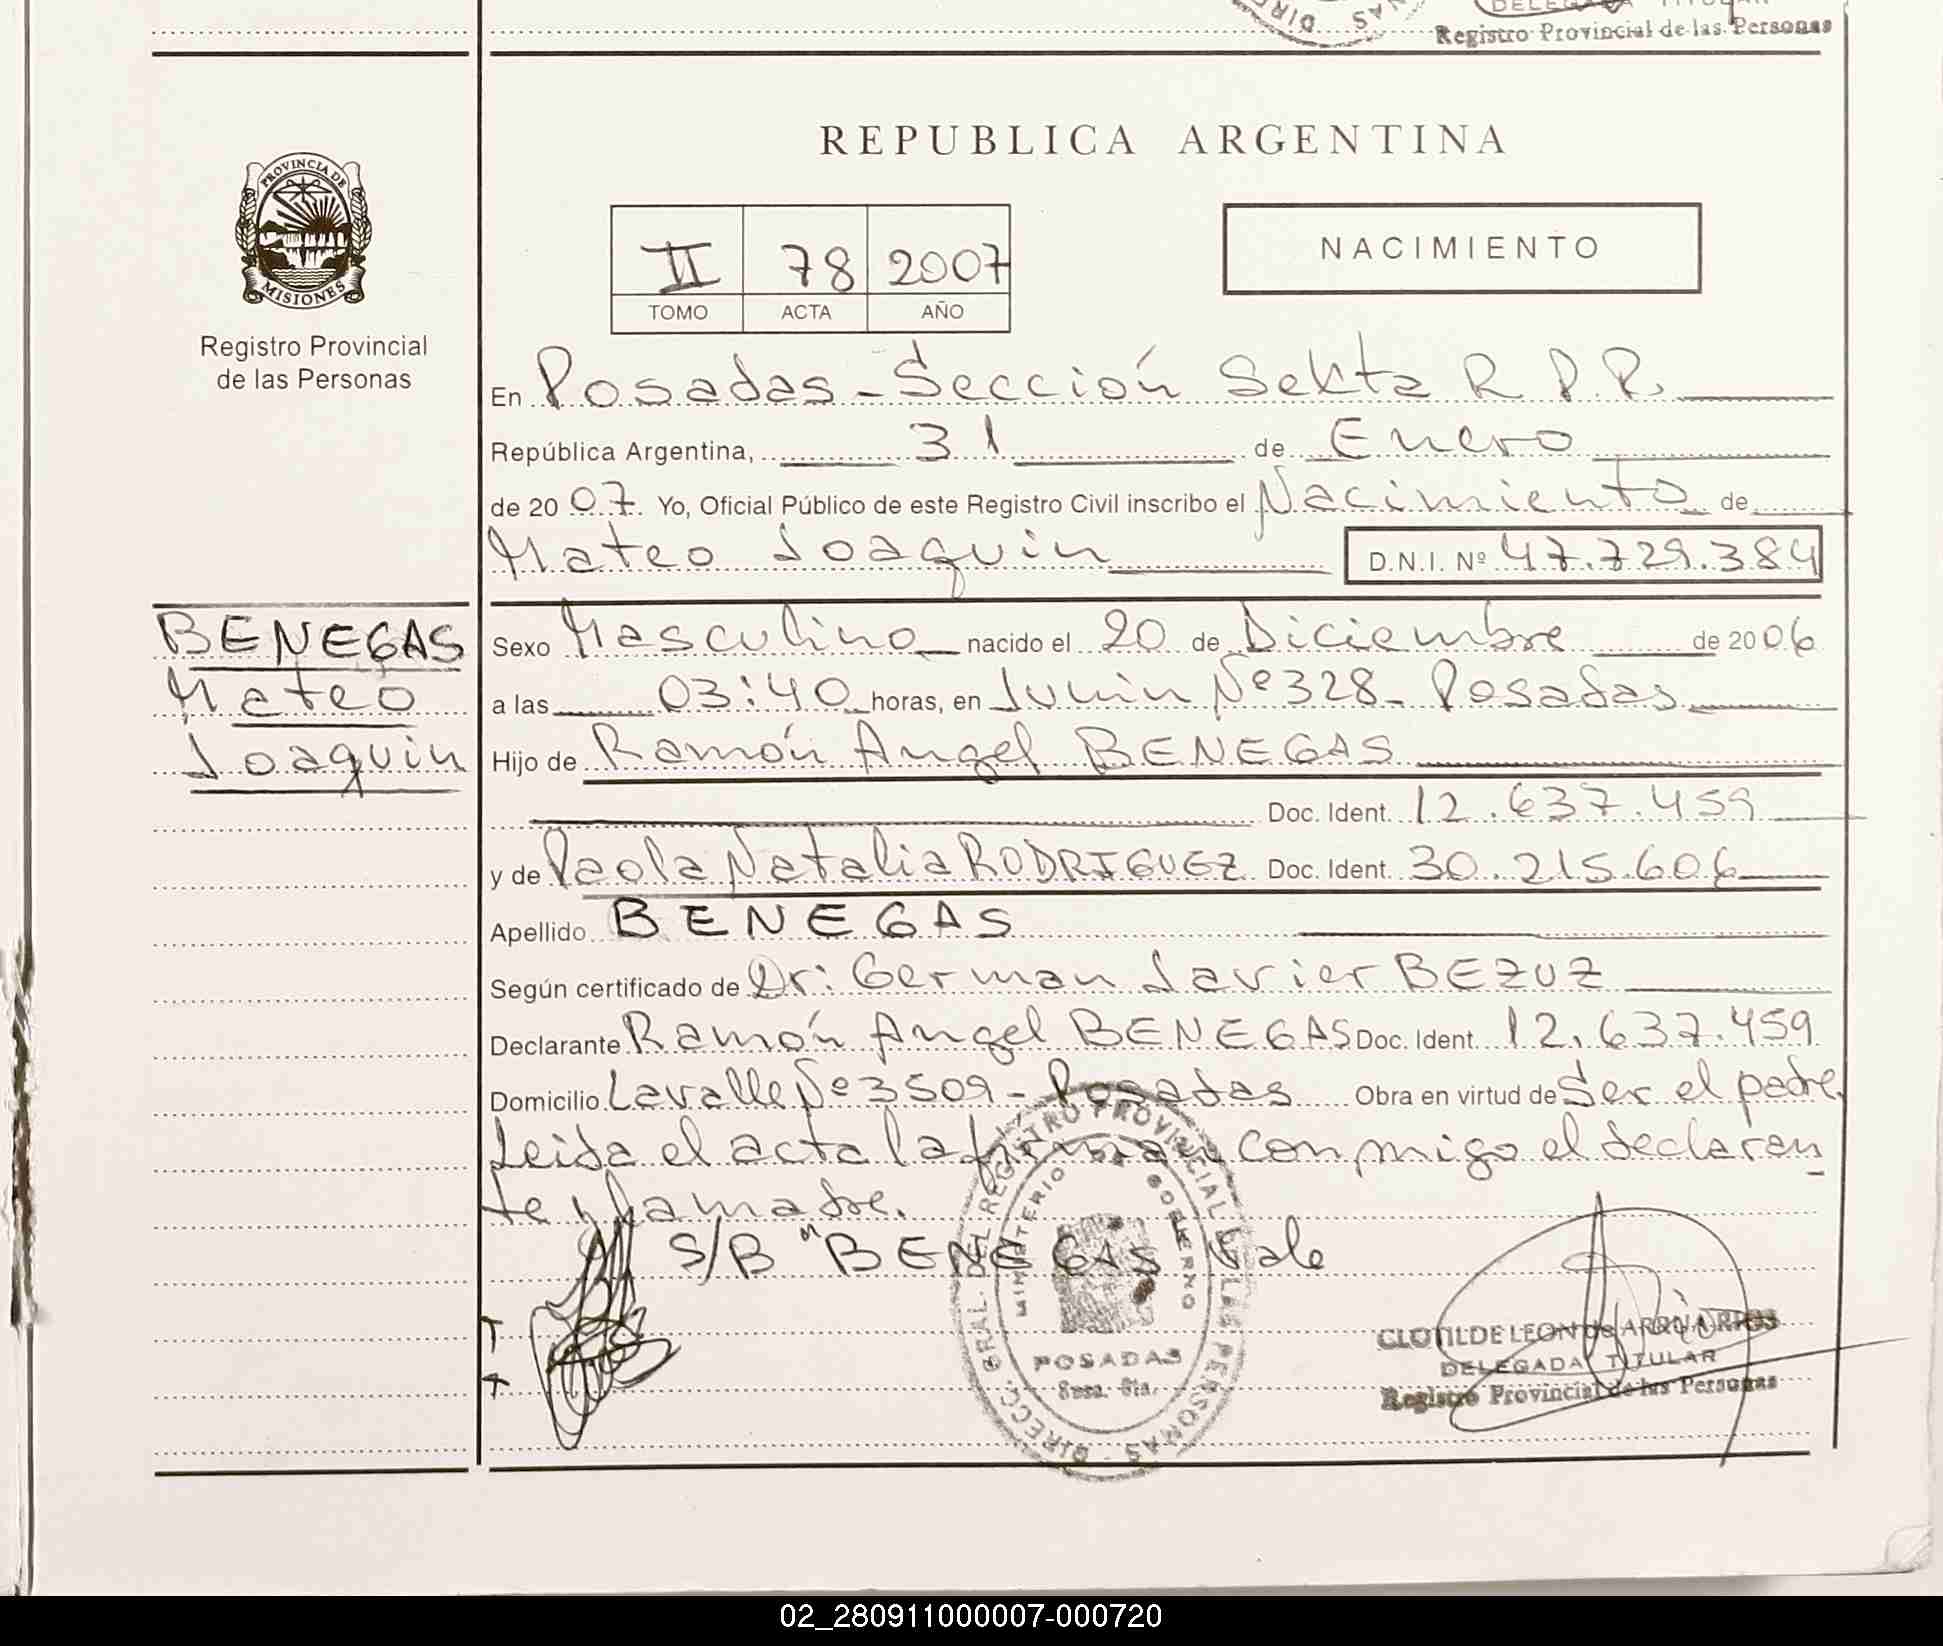 Registro Provincial de las Personas
REPUBLICA ARGENTINA
PROVINCIA DE
MISIONES
Registro Provincial
de las Personas
II 78 2007
TOMO ACTA AÑO
NACIMIENTO
En Posadas - Sección Sekta R.P.P.
República Argentina, 31 de Enero
de 2007. Yo, Oficial Público de este Registro Civil inscribo el Nacimiento de
Mateo Joaquin D.N.I. Nº 47.729.384
BENEGAS
Mateo
Joaquin
Sexo Masculino nacido el 20 de Diciembre de 2006
a las 03:40 horas, en Junin Nº 328 - Posadas
Hijo de Ramón Angel BENEGAS
Doc. Ident. 12.637.459
y de Paola Natalia RODRIGUEZ Doc. Ident. 30.215.606
Apellido BENEGAS
Según certificado de Dr: German Javier BEZUZ
Declarante Ramón Angel BENEGAS Doc. Ident. 12.637.459
Domicilio Lavalle Nº 3509 - Posadas Obra en virtud de Ser el padre.
Leida el acta la firman conmigo el declaran
te y la madre.
S/B "BENEGAS Vale
DIRECC. GRAL. DEL REGISTRO PROVINCIAL DE LAS PERSONAS
MINISTERIO DE GOBIERNO
POSADAS
CLOTILDE LEON de ARRUA RIOS
DELEGADA TITULAR
Registro Provincial de las Personas
02_280911000007-000720